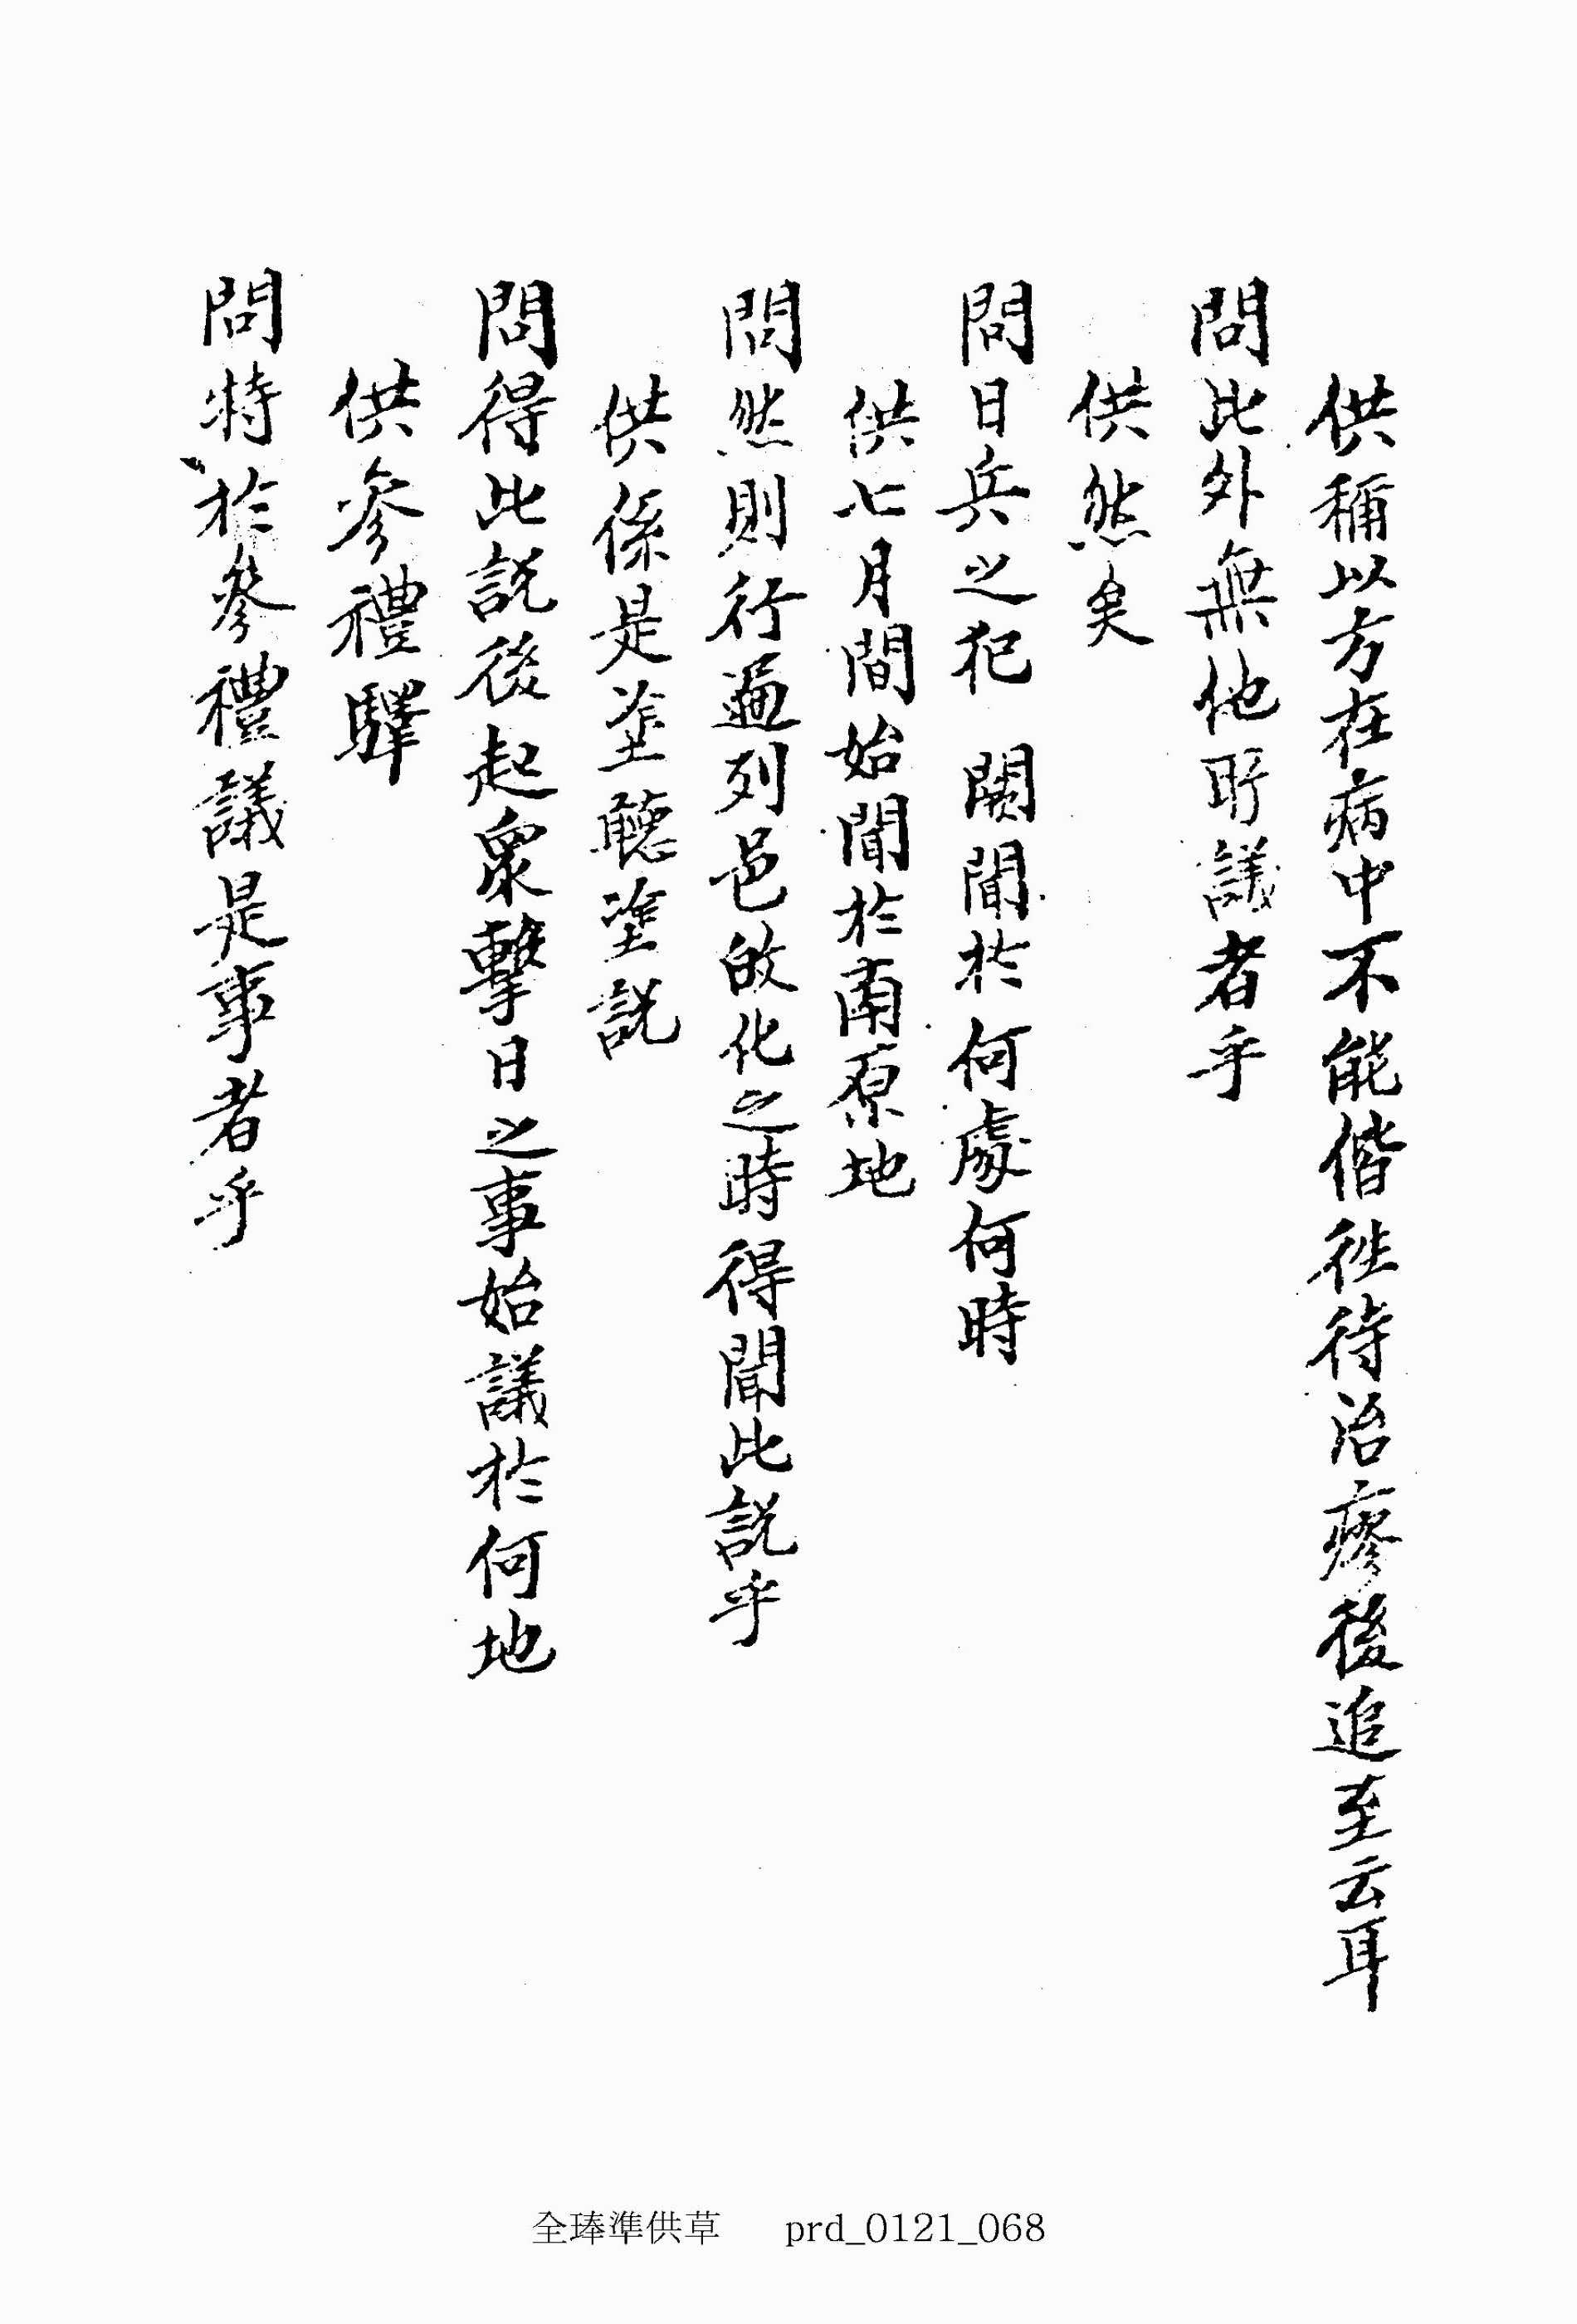 供稱以方在病中不能偕徃待治瘳後追至云耳
問此外無他所議者乎
供然矣
問日兵之犯 闕聞於何處何時
供七月間始聞於南原地
問然則行遍列邑敀化之時得聞此說乎
供係是塗聽塗說
問得此說後起衆擊日之事始議於何地
供參禮驛
問特於參禮議是事者乎
全琫準供草 prd_0121_068